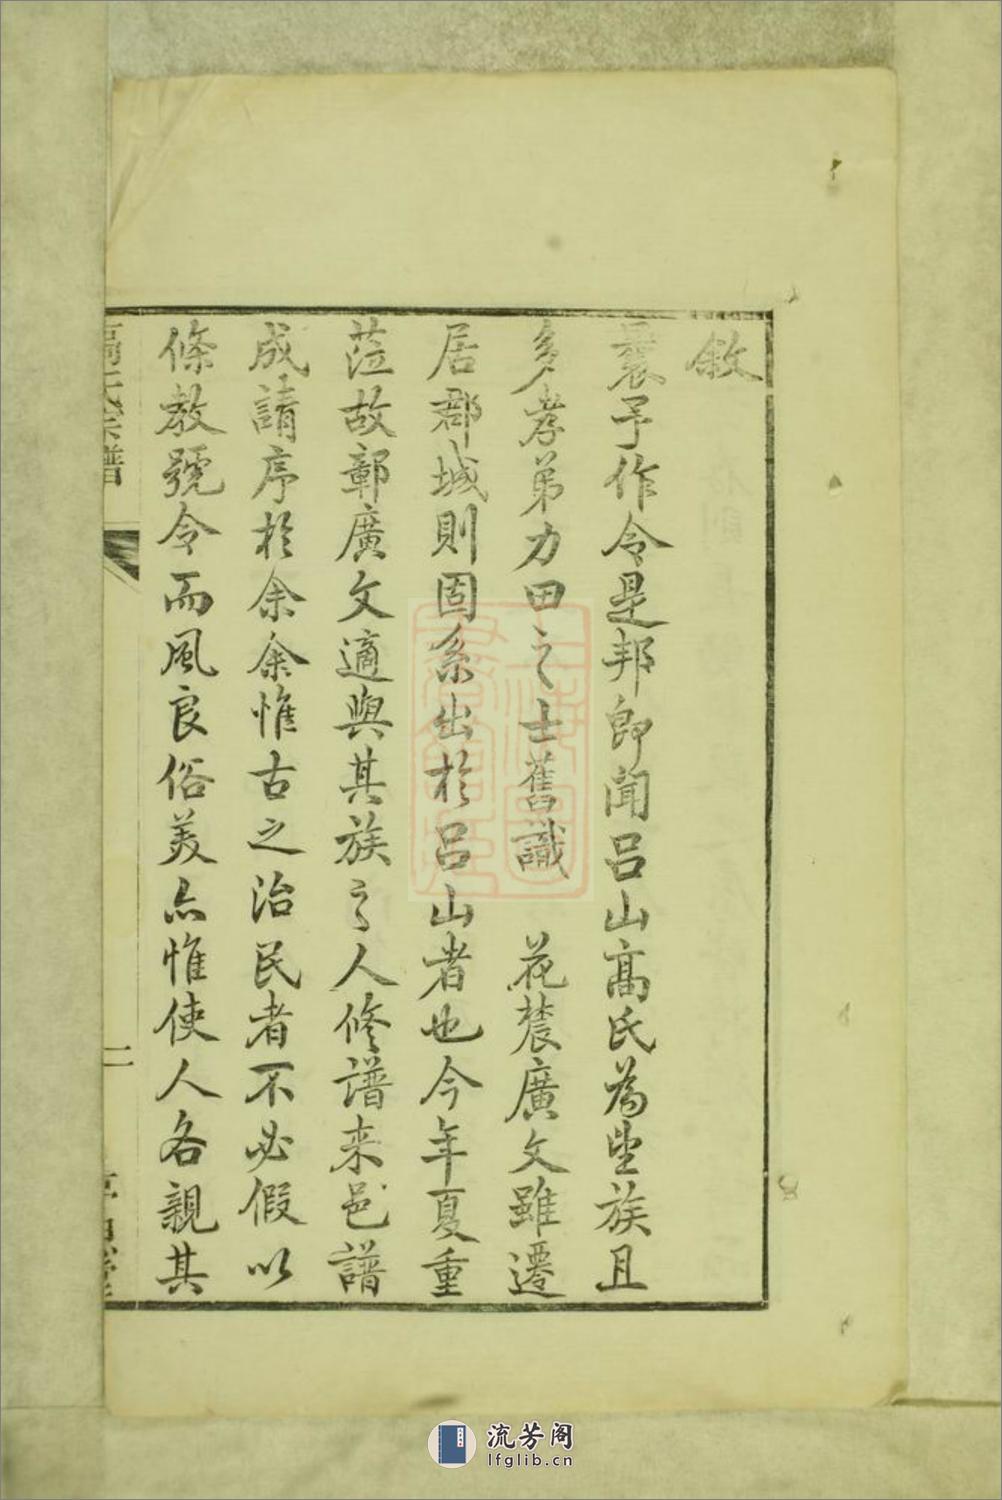 敘
曩予作令是邦即聞吕山髙氏為望族且
多孝弟力田之士舊識 花農廣文雖遷
居郡城則固系出於吕山者也今年夏重
蒞故鄣廣文適與其族之人修譜来邑譜
成請序於余余惟古之治民者不必假以
條教號令而風良俗美亦惟使人各親其
髙氏宗譜
二
流芳阁
lfglib.cn